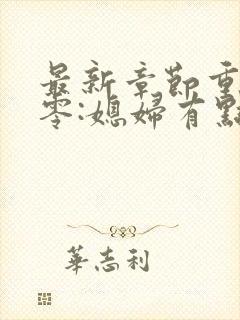 最新章節重
零:媳婦有點
華志利